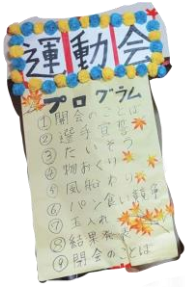 運動会
プログラム
① 開会のことば
② 選手宣言
③ たいそう
④ 物おくり
⑤ 風船わり
⑥ パン食い競争
⑦ 玉入れ
⑧ 結果発
⑨ 閉会のことば